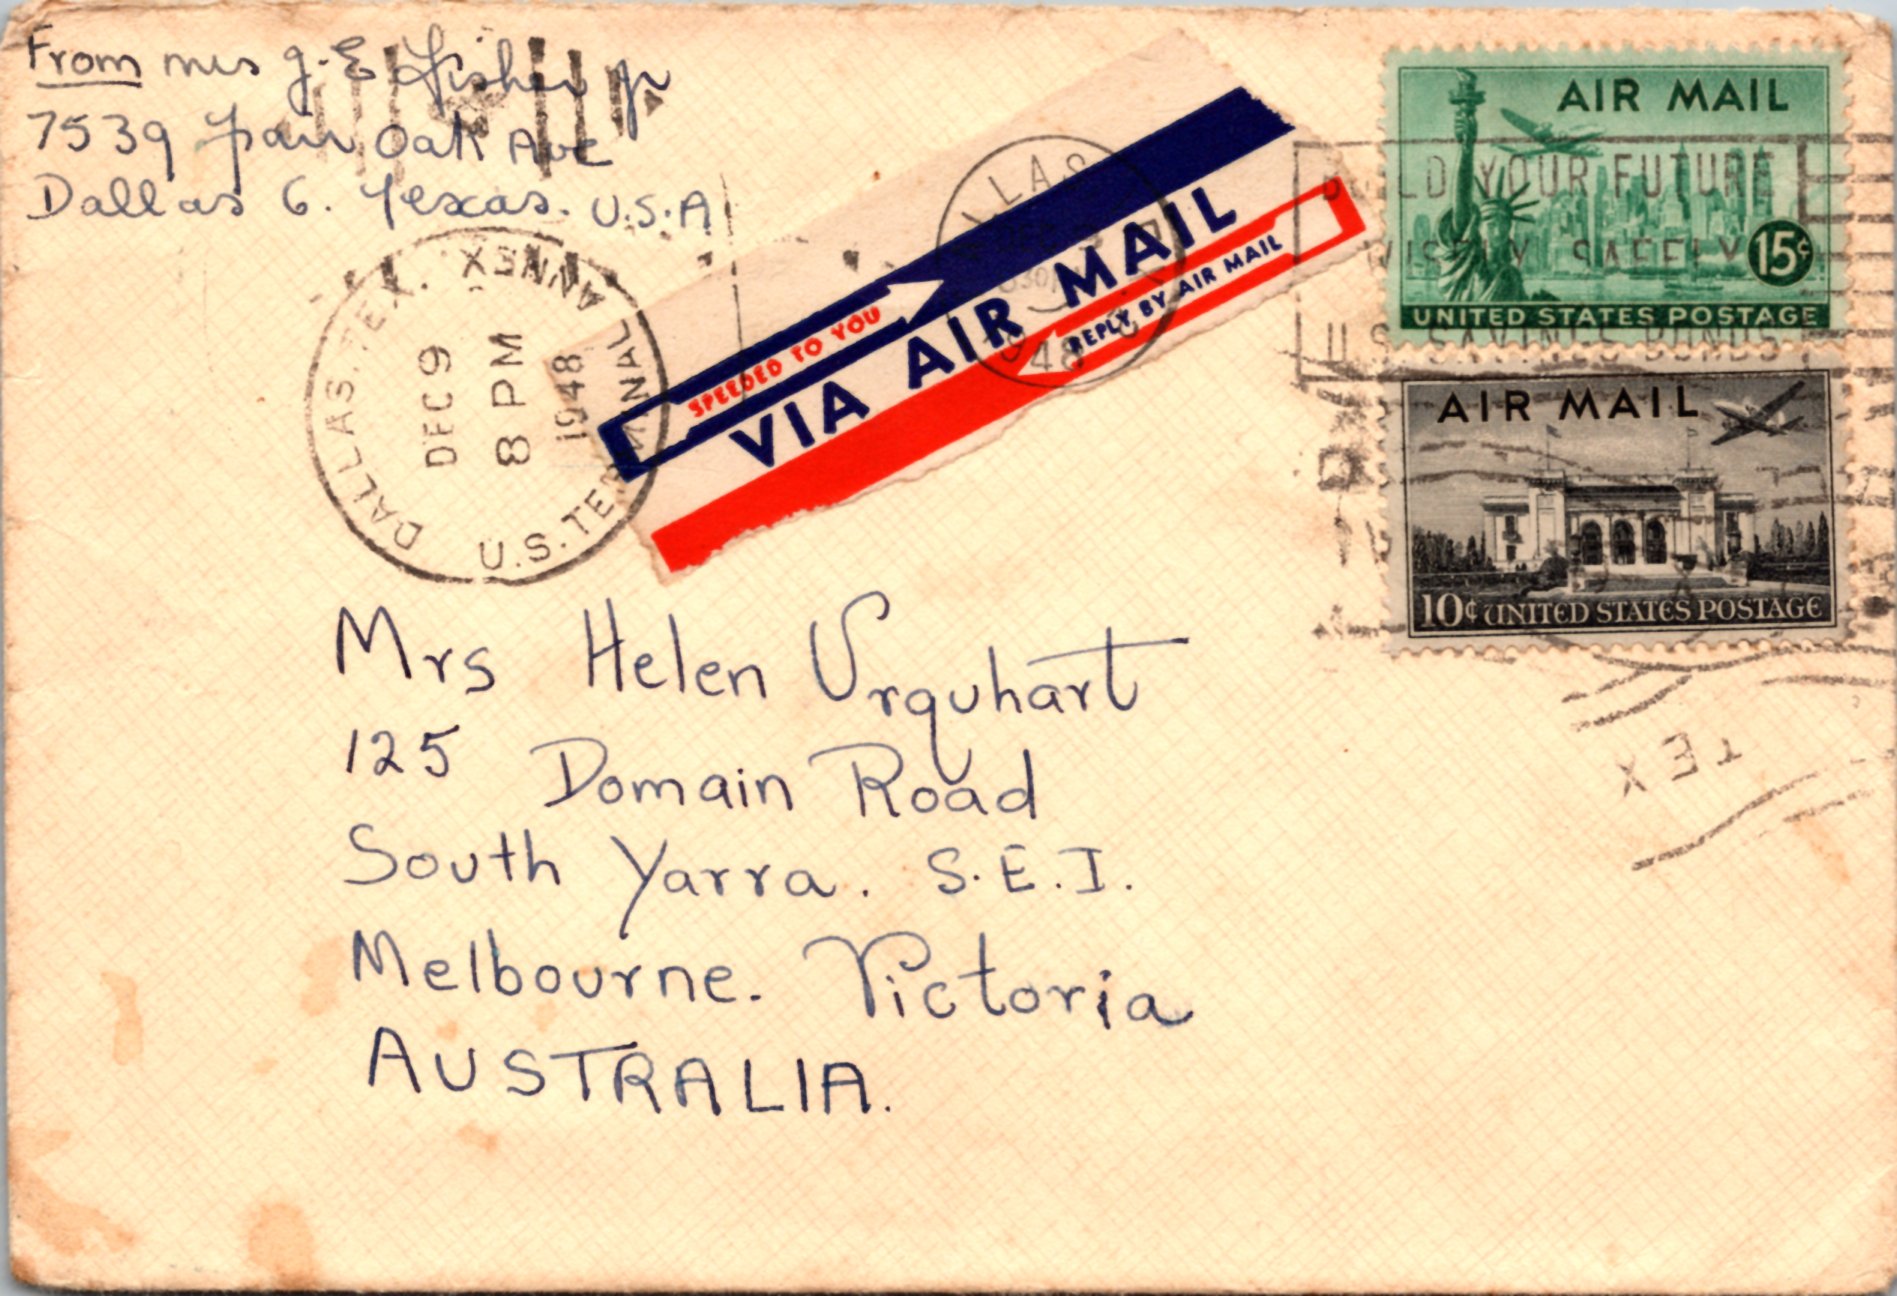 From mrs J. E Fisher Jr
7539 Fair Oak Ave
Dallas 6. Texas. U.S.A
DALLAS, TEX.
DEC 9
8 PM
1948
U.S. TERMINAL ANNEX
SPEEDED TO YOU
VIA AIR MAIL
REPLY BY AIR MAIL
1948
AIR MAIL
15¢
UNITED STATES POSTAGE
BUILD YOUR FUTURE
WISELY SAFELY
U.S. SAVINGS BONDS
AIR MAIL
10¢ UNITED STATES POSTAGE
TEX
Mrs Helen Urquhart
125 Domain Road
South Yarra. S.E.I.
Melbourne. Victoria
AUSTRALIA.